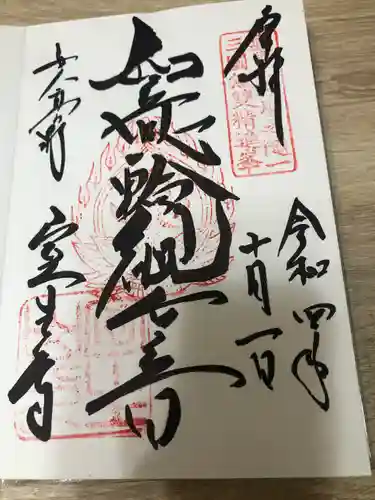 奉拝
令和四年
十月一日
如意輪観世音
女人高野
室生寺